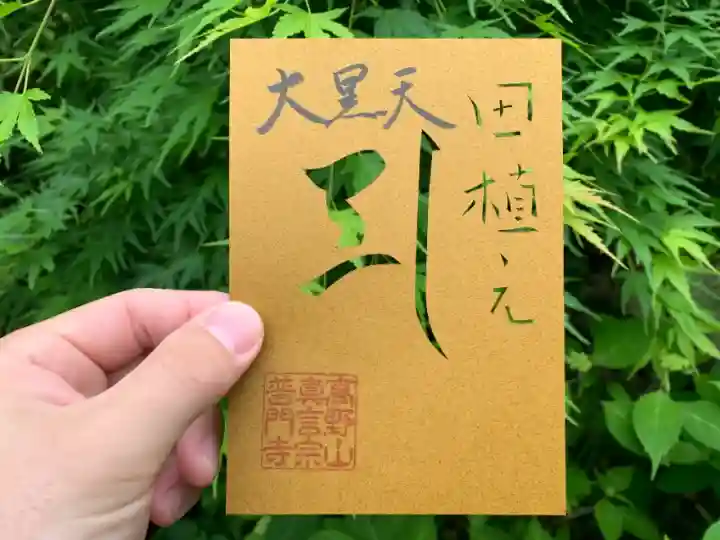 田植え
大黒天
高野山
真言宗
普門寺